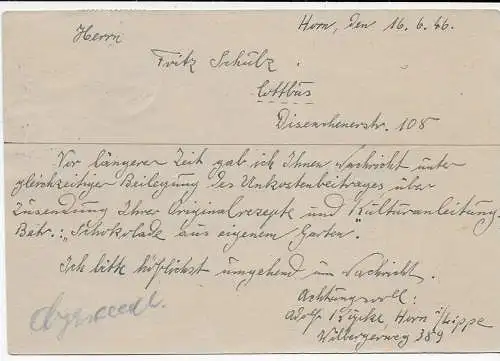 Horn, den 16.6.46.
Herrn
Fritz Schulz.
Cottbus
Disenchenerstr. 108
Vor längerer Zeit gab ich Ihnen Nachricht unter
gleichzeitiger Beilegung des Unkostenbeitrages über
Zusendung Ihrer Originalrezepte und "Kulturanleitung"
Betr.: "Schokolade aus eigenem Garten."
Ich bitte höflichst umgehend um Nachricht.
Achtungsvoll:
Adolf Horn i/Lippe
Wilbergerweg 389